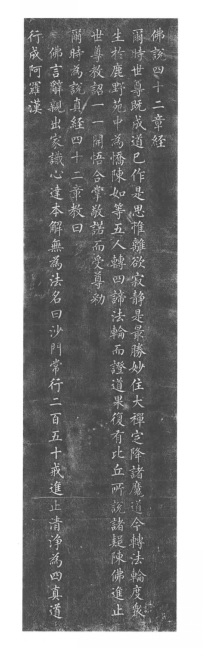 佛說四十二章經
爾時世尊既成道已作是思惟離欲寂静是最勝妙住大禪定降諸魔道今轉法輪度衆
生於鹿野苑中為憍陳如等五人轉四諦法輪而證道果復有比丘所說諸疑陳佛進止
世尊教詔一一開悟合掌敬諾而受尊勑
爾時為說真經四十二章教曰
佛言辭親出家識心達本解無為法名曰沙門常行二百五十戒進止清净為四真道
行成阿羅漢